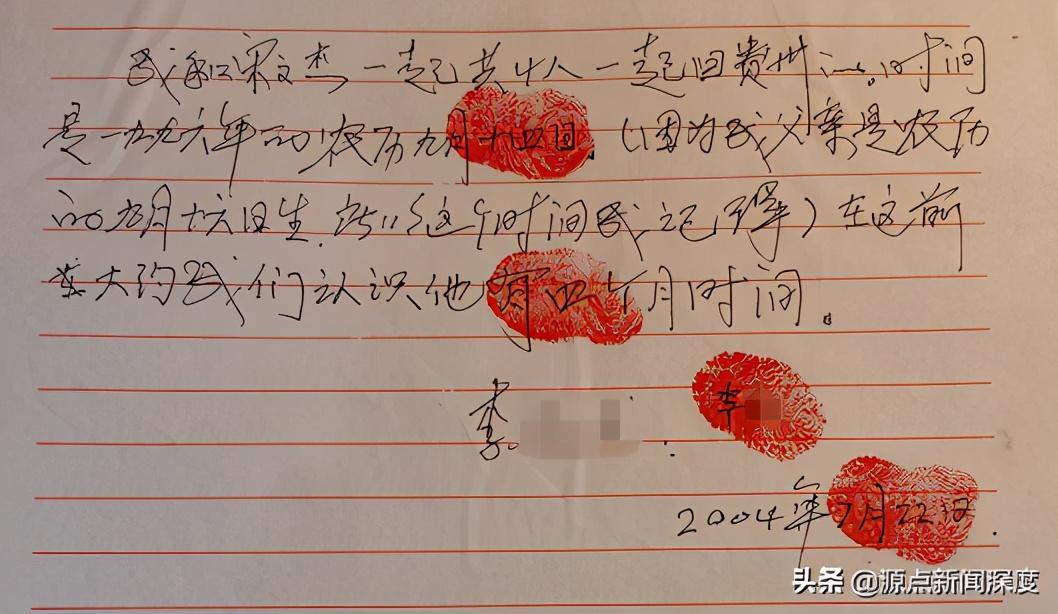 我和宋文杰一起共4人一起回贵州的。时间
是一九九六年的农历九月十四日。(因为我父亲是农历
的九月十六日生.所以这个时间我记得)在这前
大约我们认识他有四个月时间。
李 李
2004年7月22日.
头条 @源点新闻深度